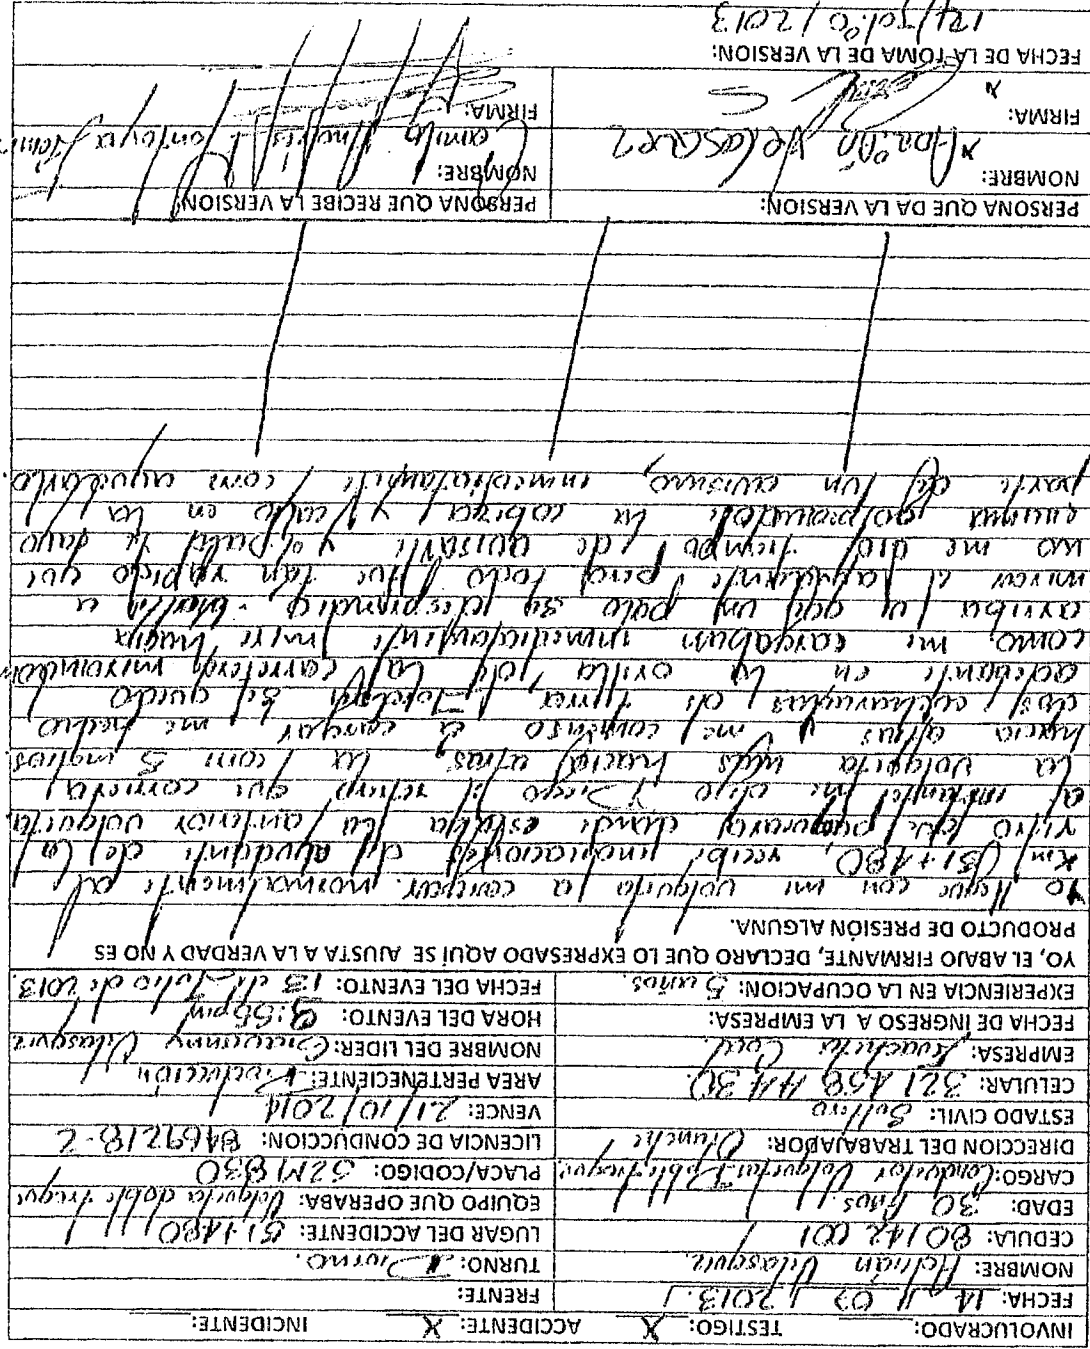 INVOLUCRADO: TESTIGO: X ACCIDENTE: X INCIDENTE:
FECHA: 14 / 07 / 2013. FRENTE:
NOMBRE: Adrián Velasquez. TURNO: Diurno.
CEDULA: 80142001 LUGAR DEL ACCIDENTE: 51+480
EDAD: 30 Años. EQUIPO QUE OPERABA: Volqueta doble troque
CARGO: Conductor Volqueta Doble troque. PLACA/CODIGO: 52M830
DIRECCION DEL TRABAJADOR: LICENCIA DE CONDUCCION: 8469218-2
ESTADO CIVIL: Soltero VENCE: 21/10/2014
CELULAR: 321 458 44 30. AREA PERTENECIENTE: Producción
EMPRESA: NOMBRE DEL LIDER: Velasquez
FECHA DE INGRESO A LA EMPRESA: HORA DEL EVENTO: 9:55pm
EXPERIENCIA EN LA OCUPACION: 5 años. FECHA DEL EVENTO: 13 de Julio de 2013
YO, EL ABAJO FIRMANTE, DECLARO QUE LO EXPRESADO AQUÍ SE AJUSTA A LA VERDAD Y NO ES
PRODUCTO DE PRESIÓN ALGUNA.
Yo llegue con mi volqueta a cargar normalmente al
Km 51+480, recibi indicaciones del ayudante de la
retro donde estaba la anterior volqueta,
al instante me dijo Diego el retero que corriera
la volqueta mas hacia atras, la corri 3 metros
hacia atras y me comenso a cargar me hecho
dos cucharas de tierra se quedo
adelante en la orilla de la carretera mirando
como me cargaban inmediatamente mire hacia
arriba y un palo se desprendio a
mirar el ayudante, pero todo fue tan rapido que
no me dio tiempo de avisarle y el palo le cayo
encima la cabeza y callo en la
parte de un abismo, inmediatamente corri ayudarlo.
PERSONA QUE DA LA VERSION: PERSONA QUE RECIBE LA VERSION
NOMBRE: Adrián Velasquez NOMBRE: Camilo Andrés Montoya
FIRMA: FIRMA:
FECHA DE LA TOMA DE LA VERSION:
14/Julio/2013